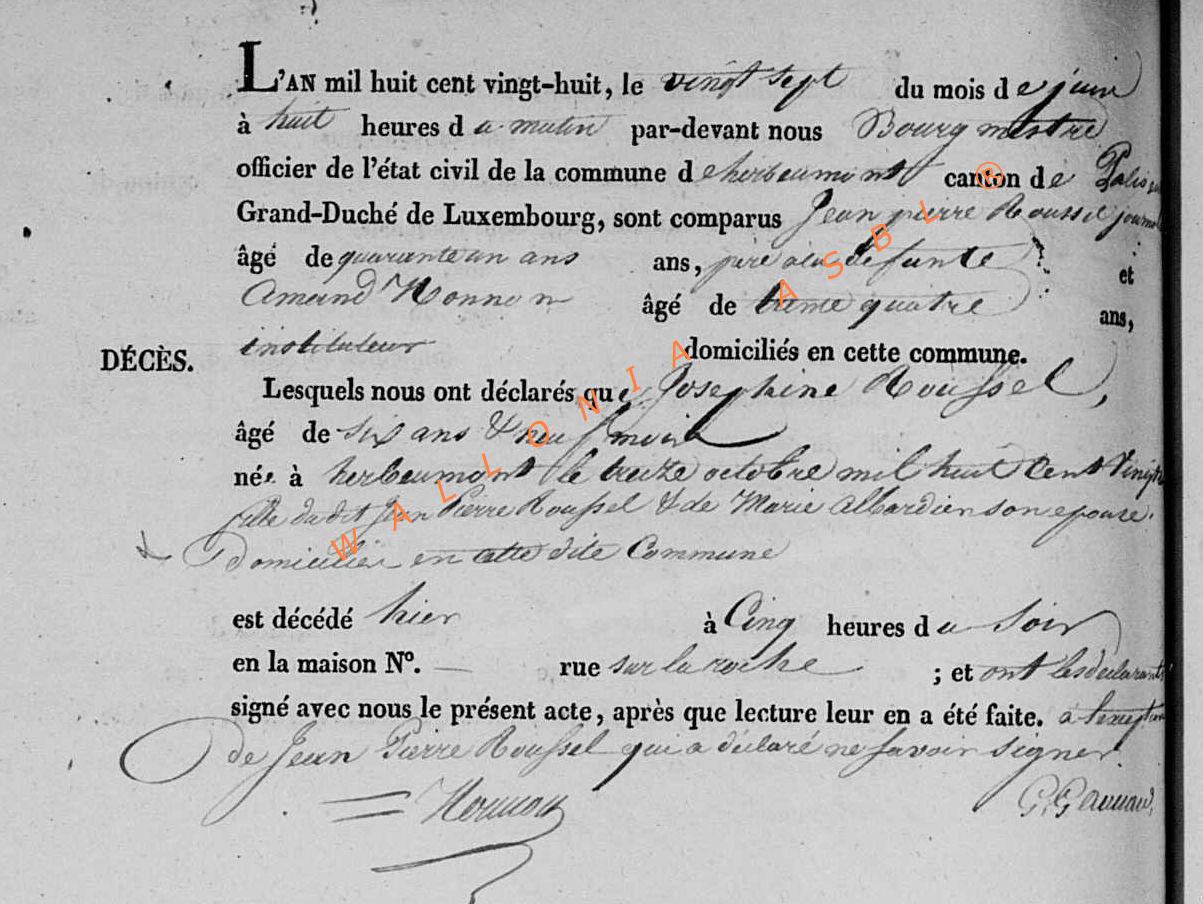 L'AN mil huit cent vingt-huit, le vingt sept du mois de juin
à huit heures du matin par-devant nous Bourgmestre
officier de l'état civil de la commune de herbeumont canton de
Grand-Duché de Luxembourg, sont comparus Jean pierre Roussel
âgé de quarante un ans ans, père à la défunte et
Amand âgé de trente quatre ans,
instituteur domiciliés en cette commune.
DÉCÈS.
Lesquels nous ont déclarés que Josephine Roussel,
âgé de six ans & neuf mois
née à herbeumont le treize octobre mil huit cent vingt
fille du dit Jean Pierre Roussel & de Marie albardier son epouse.
Domiciliés en cette dite Commune
est décédé hier à Cinq heures du Soir
en la maison Nº. — rue sur la roche ; et ont les déclarants
signé avec nous le présent acte, après que lecture leur en a été faite. à l'exception
de Jean Pierre Roussel qui a déclaré ne savoir signer.
WALLONIA ASBL ®